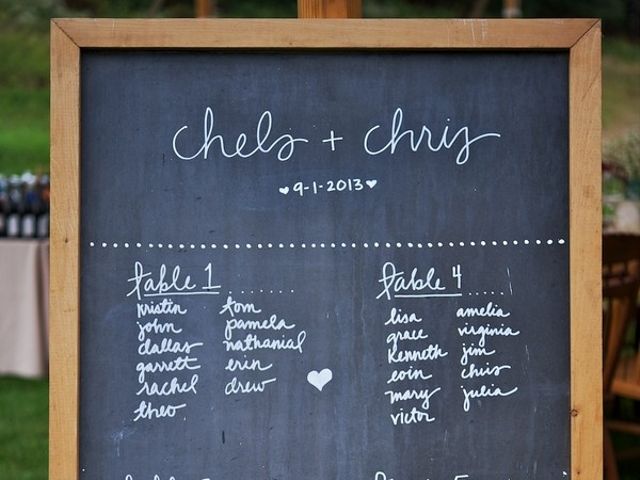 chels + chris
♥9-1-2013♥
table 1
kristin tom
john pamela
dallas nathanial
garrett erin
rachel drew
theo
table 4
lisa amelia
grace virginia
kenneth jim
eoin chris
mary julia
victor